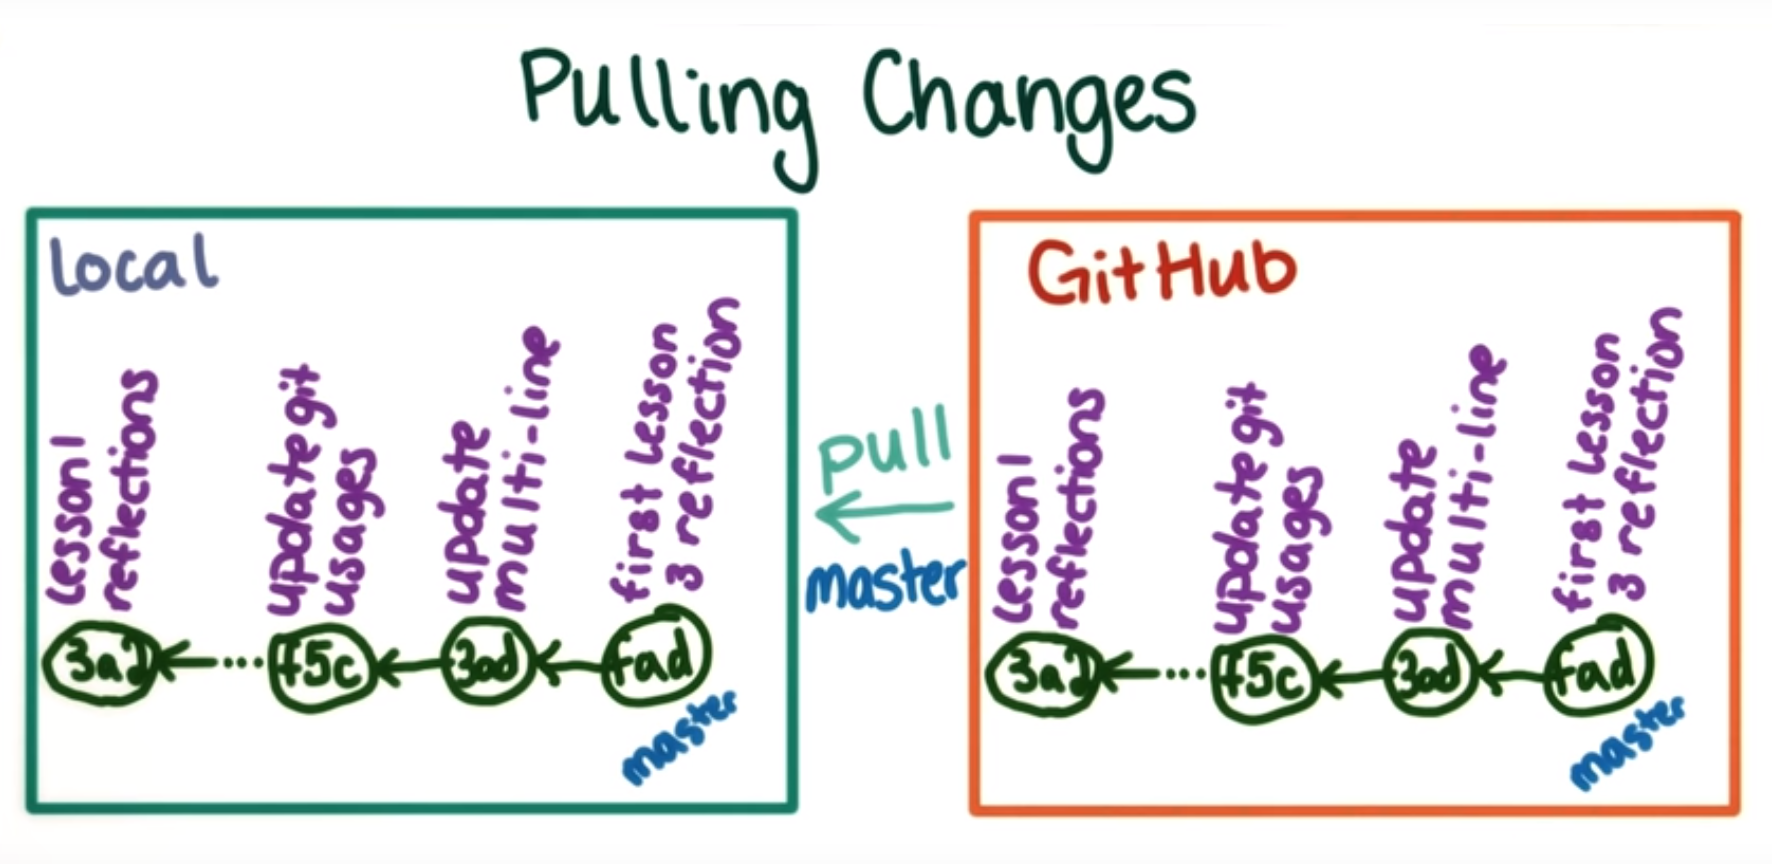 Pulling Changes
local
lesson1
reflections
update git
usages
update
multi-line
first lesson
3 reflection
3a2
f5c
3ad
fad
master
pull
master
GitHub
lesson1
reflections
update git
usages
update
multi-line
first lesson
3 reflection
3a2
f5c
3ad
fad
master